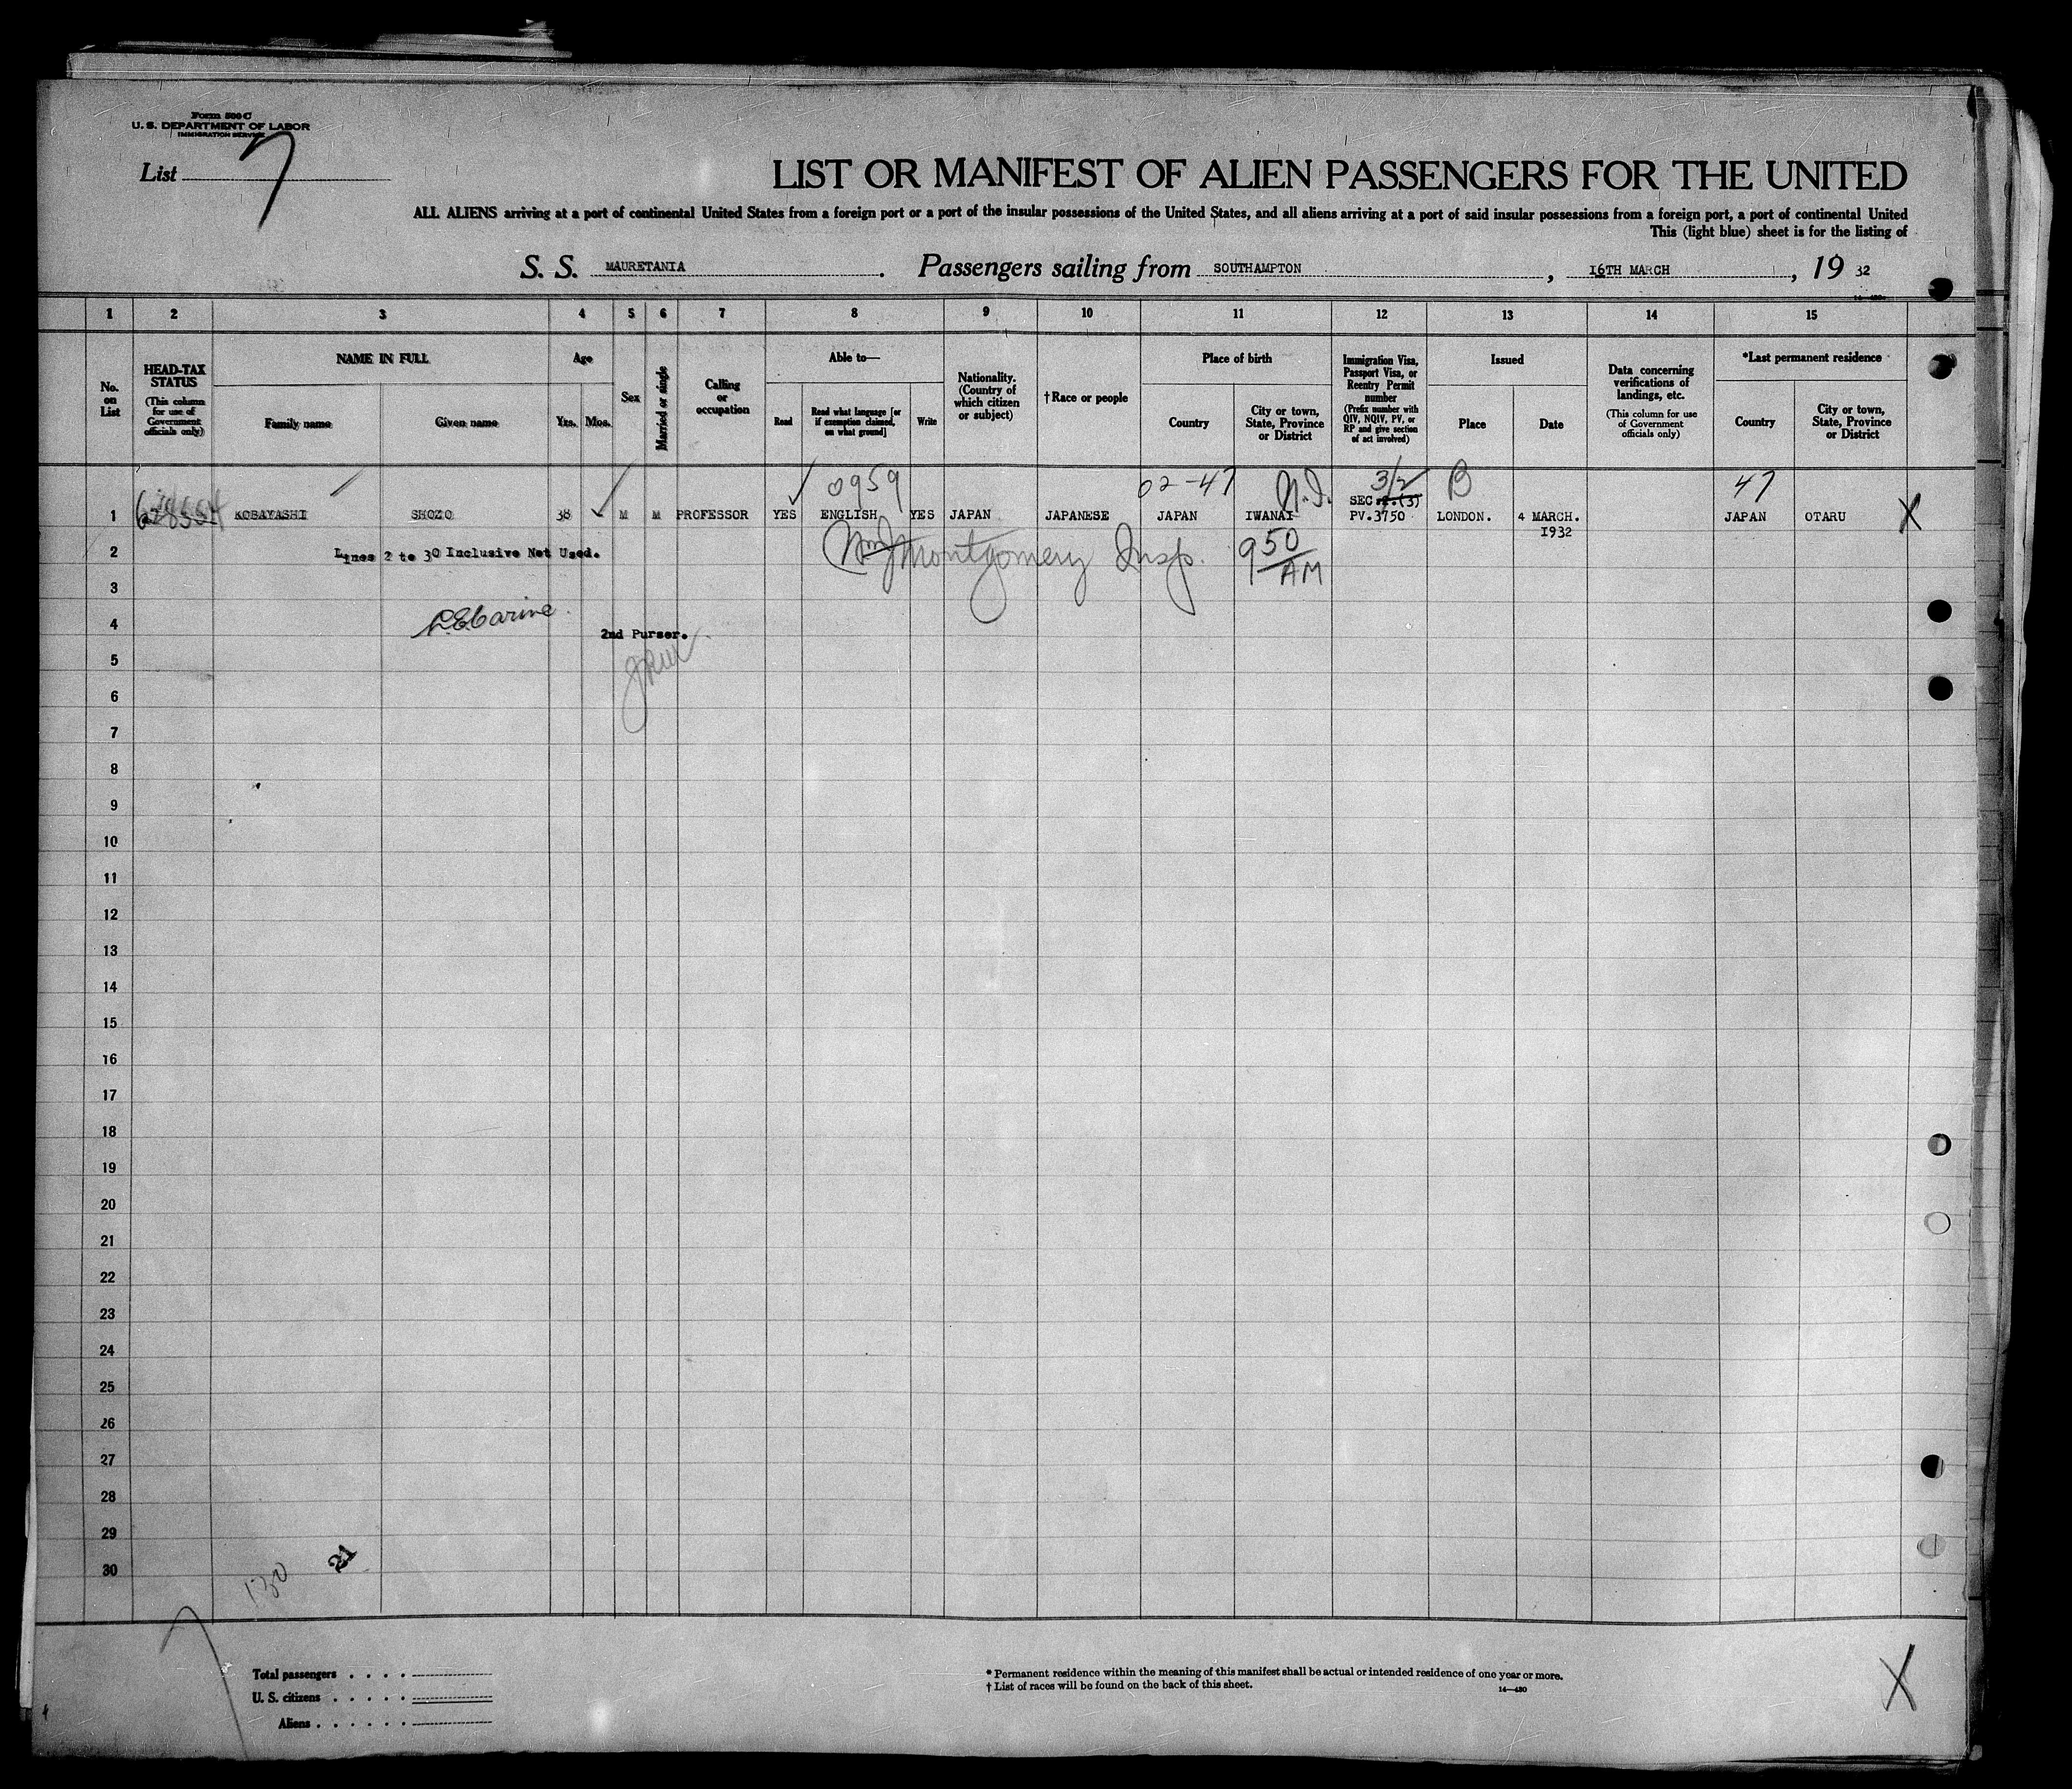 Form 500 C
U. S. DEPARTMENT OF LABOR
IMMIGRATION SERVICE
List 7
LIST OR MANIFEST OF ALIEN PASSENGERS FOR THE UNITED
ALL ALIENS arriving at a port of continental United States from a foreign port or a port of the insular possessions of the United States, and all aliens arriving at a port of said insular possessions from a foreign port, a port of continental United
This (light blue) sheet is for the listing of
S. S. MAURETANIA. Passengers sailing from SOUTHAMPTON, 16TH MARCH, 19 32
1 2 3 4 5 6 7 8 9 10 11 12 13 14 15
No. on List
HEAD-TAX STATUS
(This column for use of Government officials only)
NAME IN FULL
Family name
Given name
Age
Yrs.
Mos.
Sex
Married or single
Calling or occupation
Able to—
Read
Read what language [or if exemption claimed, on what ground]
Write
Nationality. (Country of which citizen or subject)
†Race or people
Place of birth
Country
City or town, State, Province or District
Immigration Visa, Passport Visa, or Reentry Permit number
(Prefix number with QIV, NQIV, PV, or RP and give section of act involved)
Issued
Place
Date
Data concerning verifications of landings, etc.
(This column for use of Government officials only)
*Last permanent residence
Country
City or town, State, Province or District
0959 02-47 N.I. 3/2 B 47
SEC (3)
1 KOBAYASHI SHOZO 38 M M PROFESSOR YES ENGLISH YES JAPAN JAPANESE JAPAN IWANAI PV.3750 LONDON. 4 MARCH. 1932 JAPAN OTARU X
2 Lines 2 to 30 Inclusive Not Used. Montgomery Insp. 9 50 AM
3
4 2nd Purser.
5
6
7
8
9
10
11
12
13
14
15
16
17
18
19
20
21
22
23
24
25
26
27
28
29
30
130 21
Total passengers . . . .
U. S. citizens . . . . .
Aliens . . . . . .
* Permanent residence within the meaning of this manifest shall be actual or intended residence of one year or more.
† List of races will be found on the back of this sheet.
14—430
X